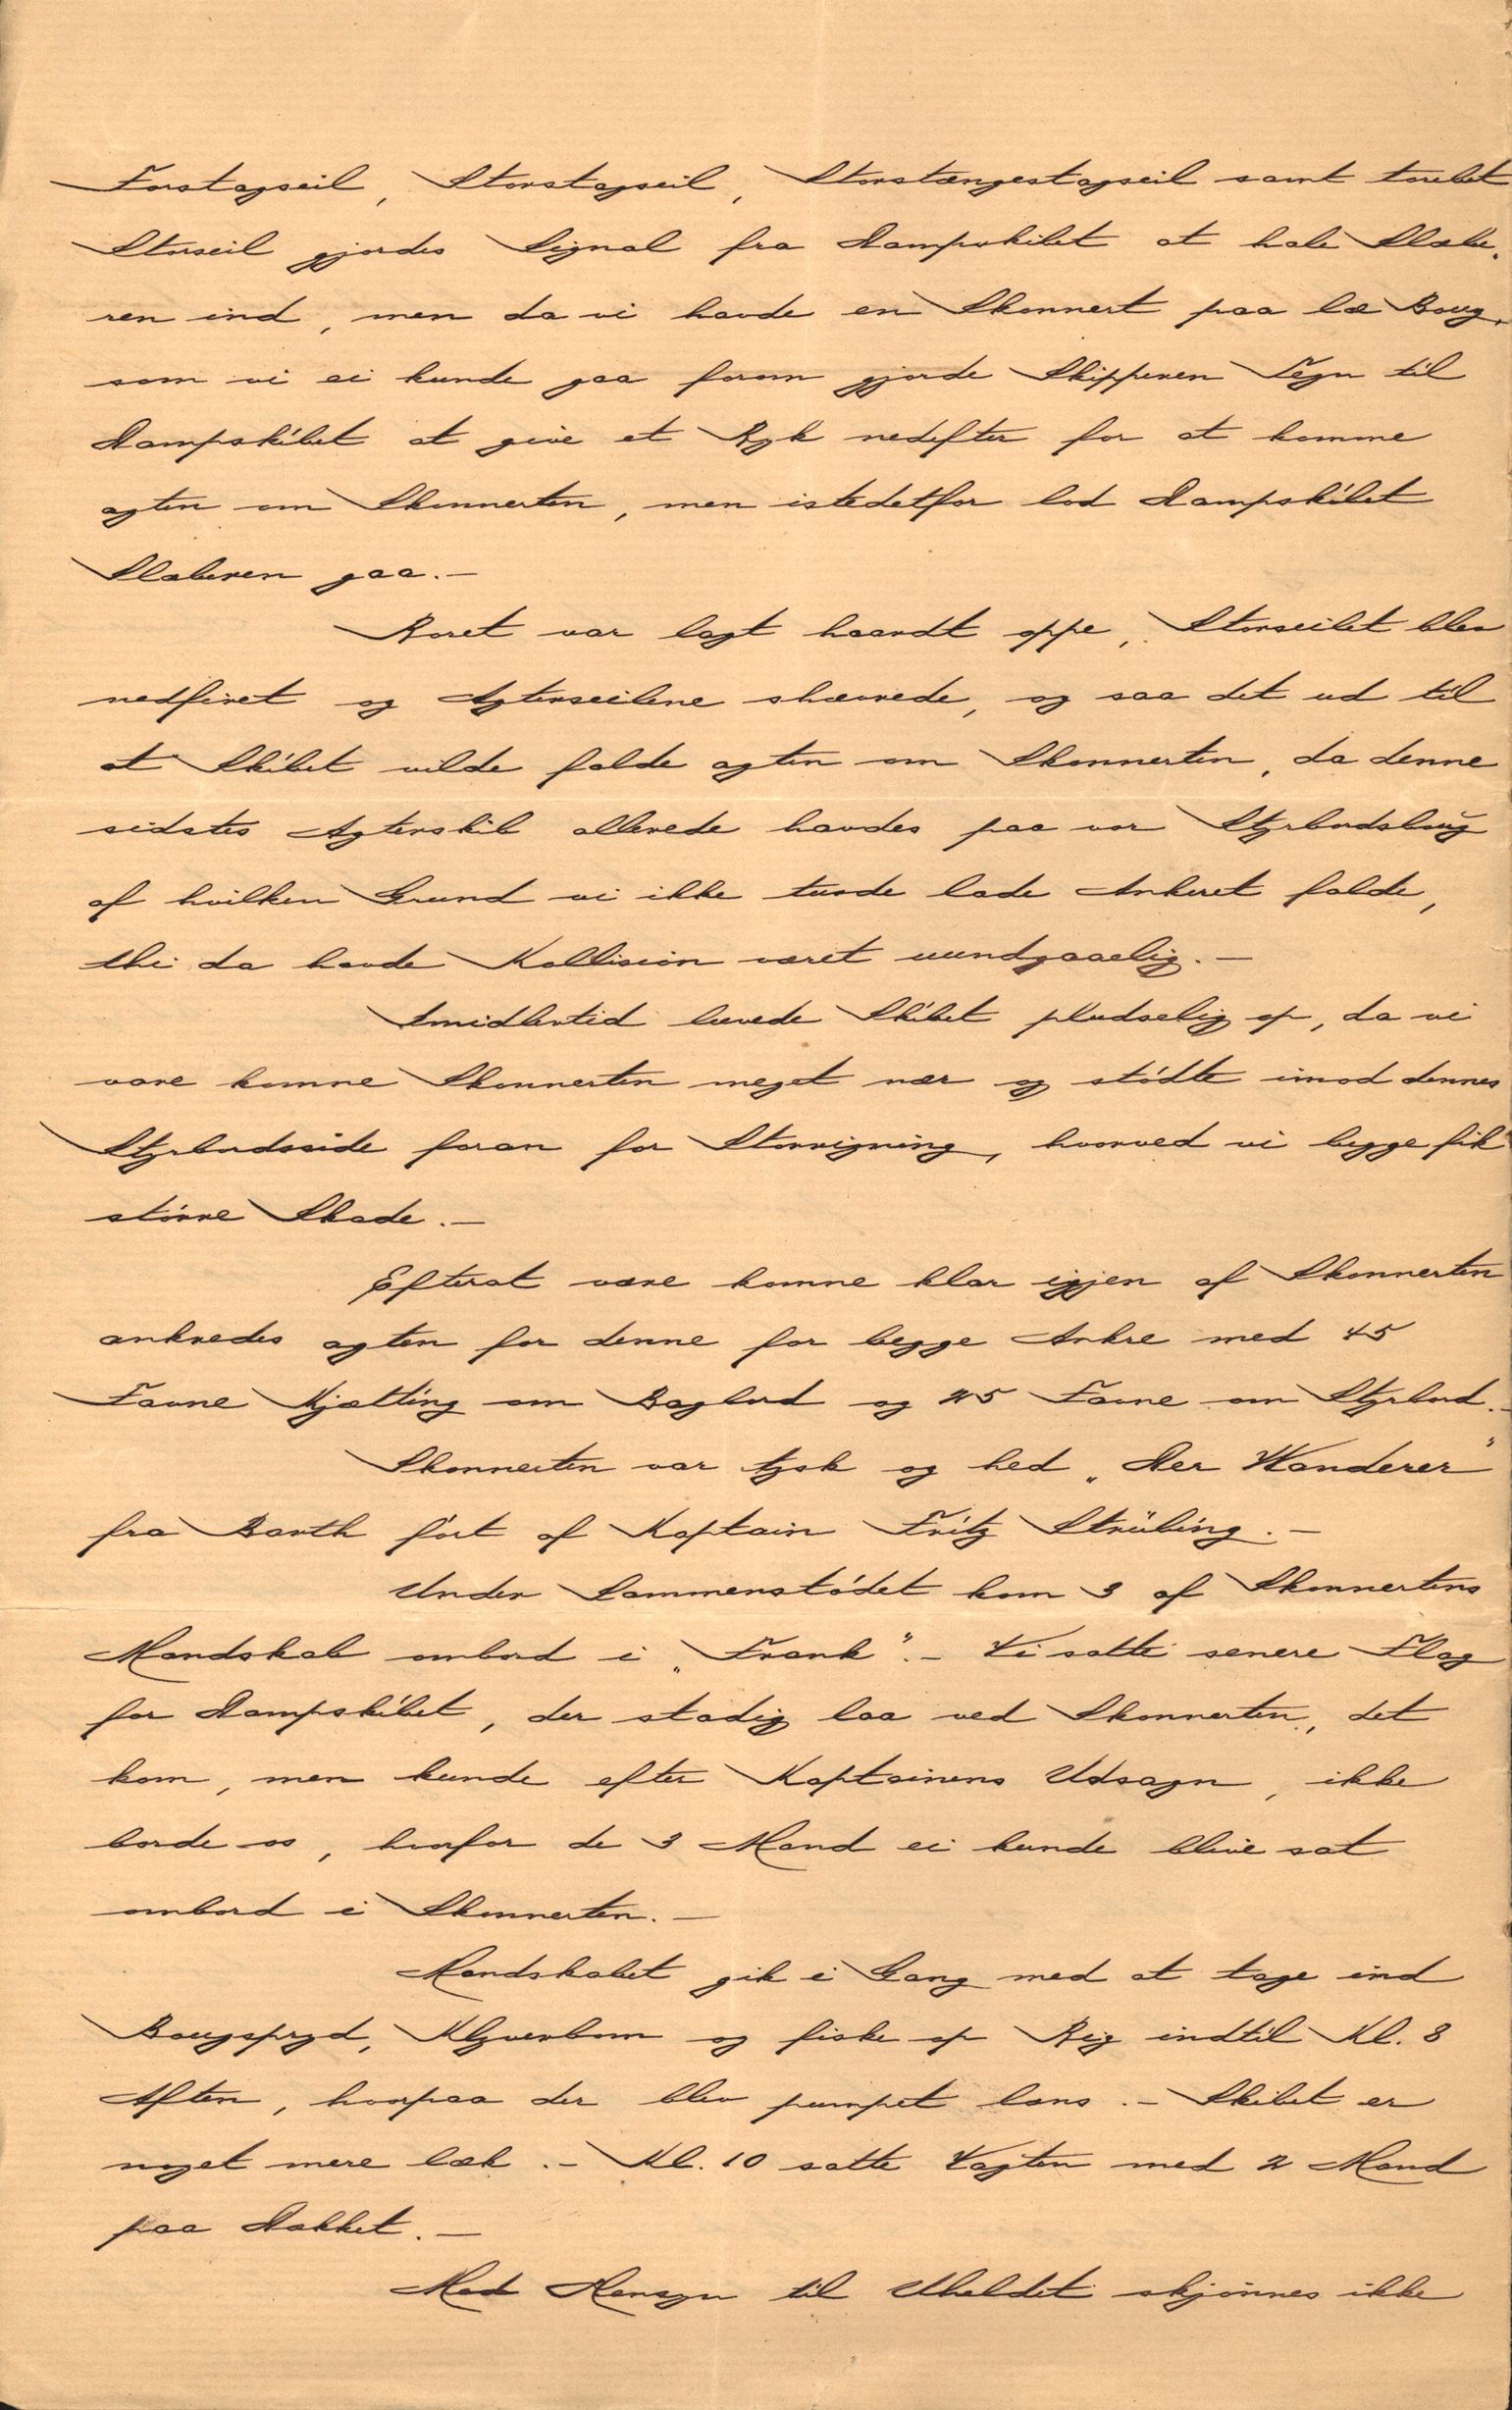 Forstagseil, Storstagseil, Storstængestagseil samt torebet
Storseil gjordes Signal fra Dampskibet at hale Slæbe-
ren ind, men da vi havde en Skonnert paa læ Boug,
som vi ei kunde gaa forom gjorde Skipperen Tegn til
Dampskibet at give et Ryk nedefter for at komme
agten om Skonnerten, men istedetfor lod Dampskibet
Slæberen gaa.-
Roret var lagt haardt oppe, Storseilet blev
nedfiret og Agterseilene skæverede, og saa det ud til
at Skibet vilde falde agten om Skonnerten, da denne
sidstes Agterskib allerede havdes paa vor Styrbordsboug
af hvilken Grund vi ikke turde lade Ankeret falde,
thi da havde Kollision været uundgaaelig.-
Imidlertid luvede Skibet pludselig op, da vi
vare komne Skonnerten meget nær og stødte imod dennes
Styrbordsside foran for Storrigning, hvorved vi begge fik
større Skade.-
Efterat være komne klar igjen af Skonnerten
ankredes agten for denne for begge Ankre med 45
Favne Kjætting om Bagbord og 25 Favne om Styrbord.-
Skonnerten var tysk og hed „Der Wanderer”
fra Barth ført af Kaptain Fritz Strübing.-
Under Sammenstødet kom 3 af Skonnertens
Mandskab ombord i „Frank”.- Vi satte senere Flag
for Dampskibet, der stadig laa ved Skonnerten, det
kom, men kunde efter Kaptainens Udsagn, ikke
borde os, hvorfor de 3 Mand ei kunde blive sat
ombord i Skonnerten.-
Mandskabet gik i Gang med at tage ind
Bougspryd, Klyverbom og fiske op Rig indtil Kl. 8
Aften, hvorpaa der blev pumpet læns.- Skibet er
noget mere læk.- Kl. 10 satte Vagten med 2 Mand
paa Dækket.-
Med Hensyn til Uheldet skjønnes ikke